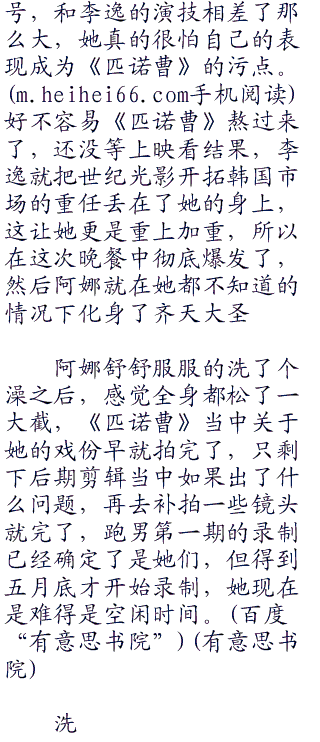 号，和李逸的演技相差了那
么大，她真的很怕自己的表
现成为《匹诺曹》的污点。
(m.heihei66.com手机阅读)
好不容易《匹诺曹》熬过来
了，还没等上映看结果，李
逸就把世纪光影开拓韩国市
场的重任丢在了她的身上，
这让她更是重上加重，所以
在这次晚餐中彻底爆发了，
然后阿娜就在她都不知道的
情况下化身了齐天大圣
阿娜舒舒服服的洗了个
澡之后，感觉全身都松了一
大截，《匹诺曹》当中关于
她的戏份早就拍完了，只剩
下后期剪辑当中如果出了什
么问题，再去补拍一些镜头
就完了，跑男第一期的录制
已经确定了是她们，但得到
五月底才开始录制，她现在
是难得是空闲时间。(百度
“有意思书院”)(有意思书
院)
洗